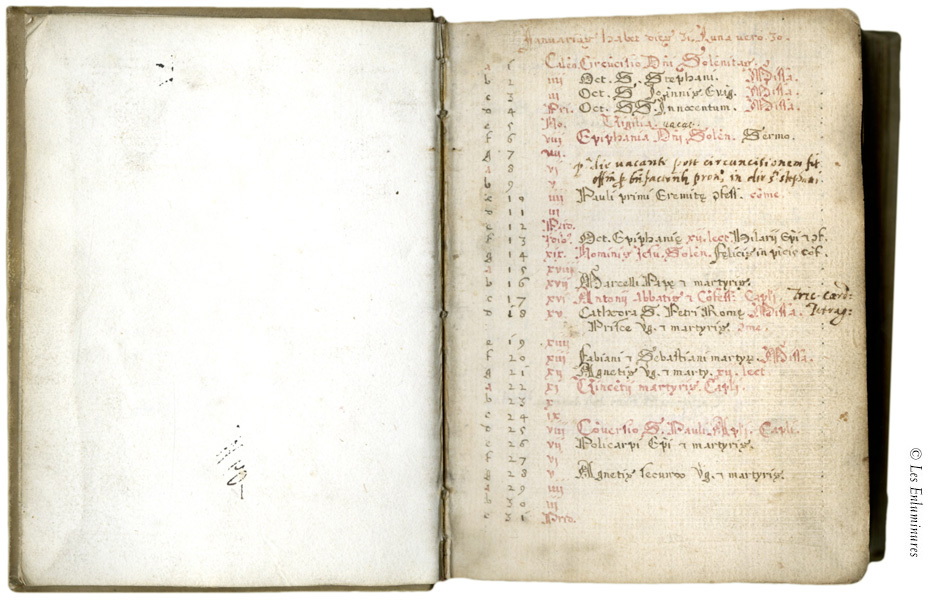 Januarius habet dies 31. Luna vero 30.
a 1 Calen. Circūcisio Dni Solenitas.
b 2 iiii Oct. S. Stephani. Missa.
c 3 iii Oct. S. Joannis Evāg. Missa.
d 4 Pri. Oct. SS. Innocentum. Missa.
e 5 No. Vigilia. vacat.
f 6 viii Epiphania Dni. Solēn. Sermo.
g 7 vii.
a 8 vi die vacanti post circuncisionem fit
b 9 v in die sti stephani.
c 10 iiii Pauli primi Eremitę ɔfess. cōme.
d 11 iii
e 12 Prid.
f 13 Idib9. Oct. Epiphanię xii. lect. Hilarii Epi ⁊ ɔf.
g 14 xix. Nominis Jesu. Solēn. Felicis in pīcis cōf.
a 15 xviii
b 16 xvii Marcelli Papę ⁊ martyris.
c 17 xvi Antonii abbatis ⁊ Cōfess. Capli.
d 18 xv. Cathedra S. Petri Romę Missa.
Priscę Vg. ⁊ martyris. ɔme.
e 19 xiiii
f 20 xiii Fabiani ⁊ Sebastiani martyrʒ. Missa.
g 21 xii Agnetis Vg. ⁊ marty. xii. lect
a 22 xi Vincētii martyris. Capli.
b 23 x
c 24 ix
d 25 viii Cōversio S. Pauli. Apli. Capli.
e 26 vii Policarpi Epi ⁊ martyris.
f 27 vi
g 28 v Agnetis secundo Vg. ⁊ martyris.
a 29 iiii
b 30 iii
c 31 Prid.
© Les Enluminures